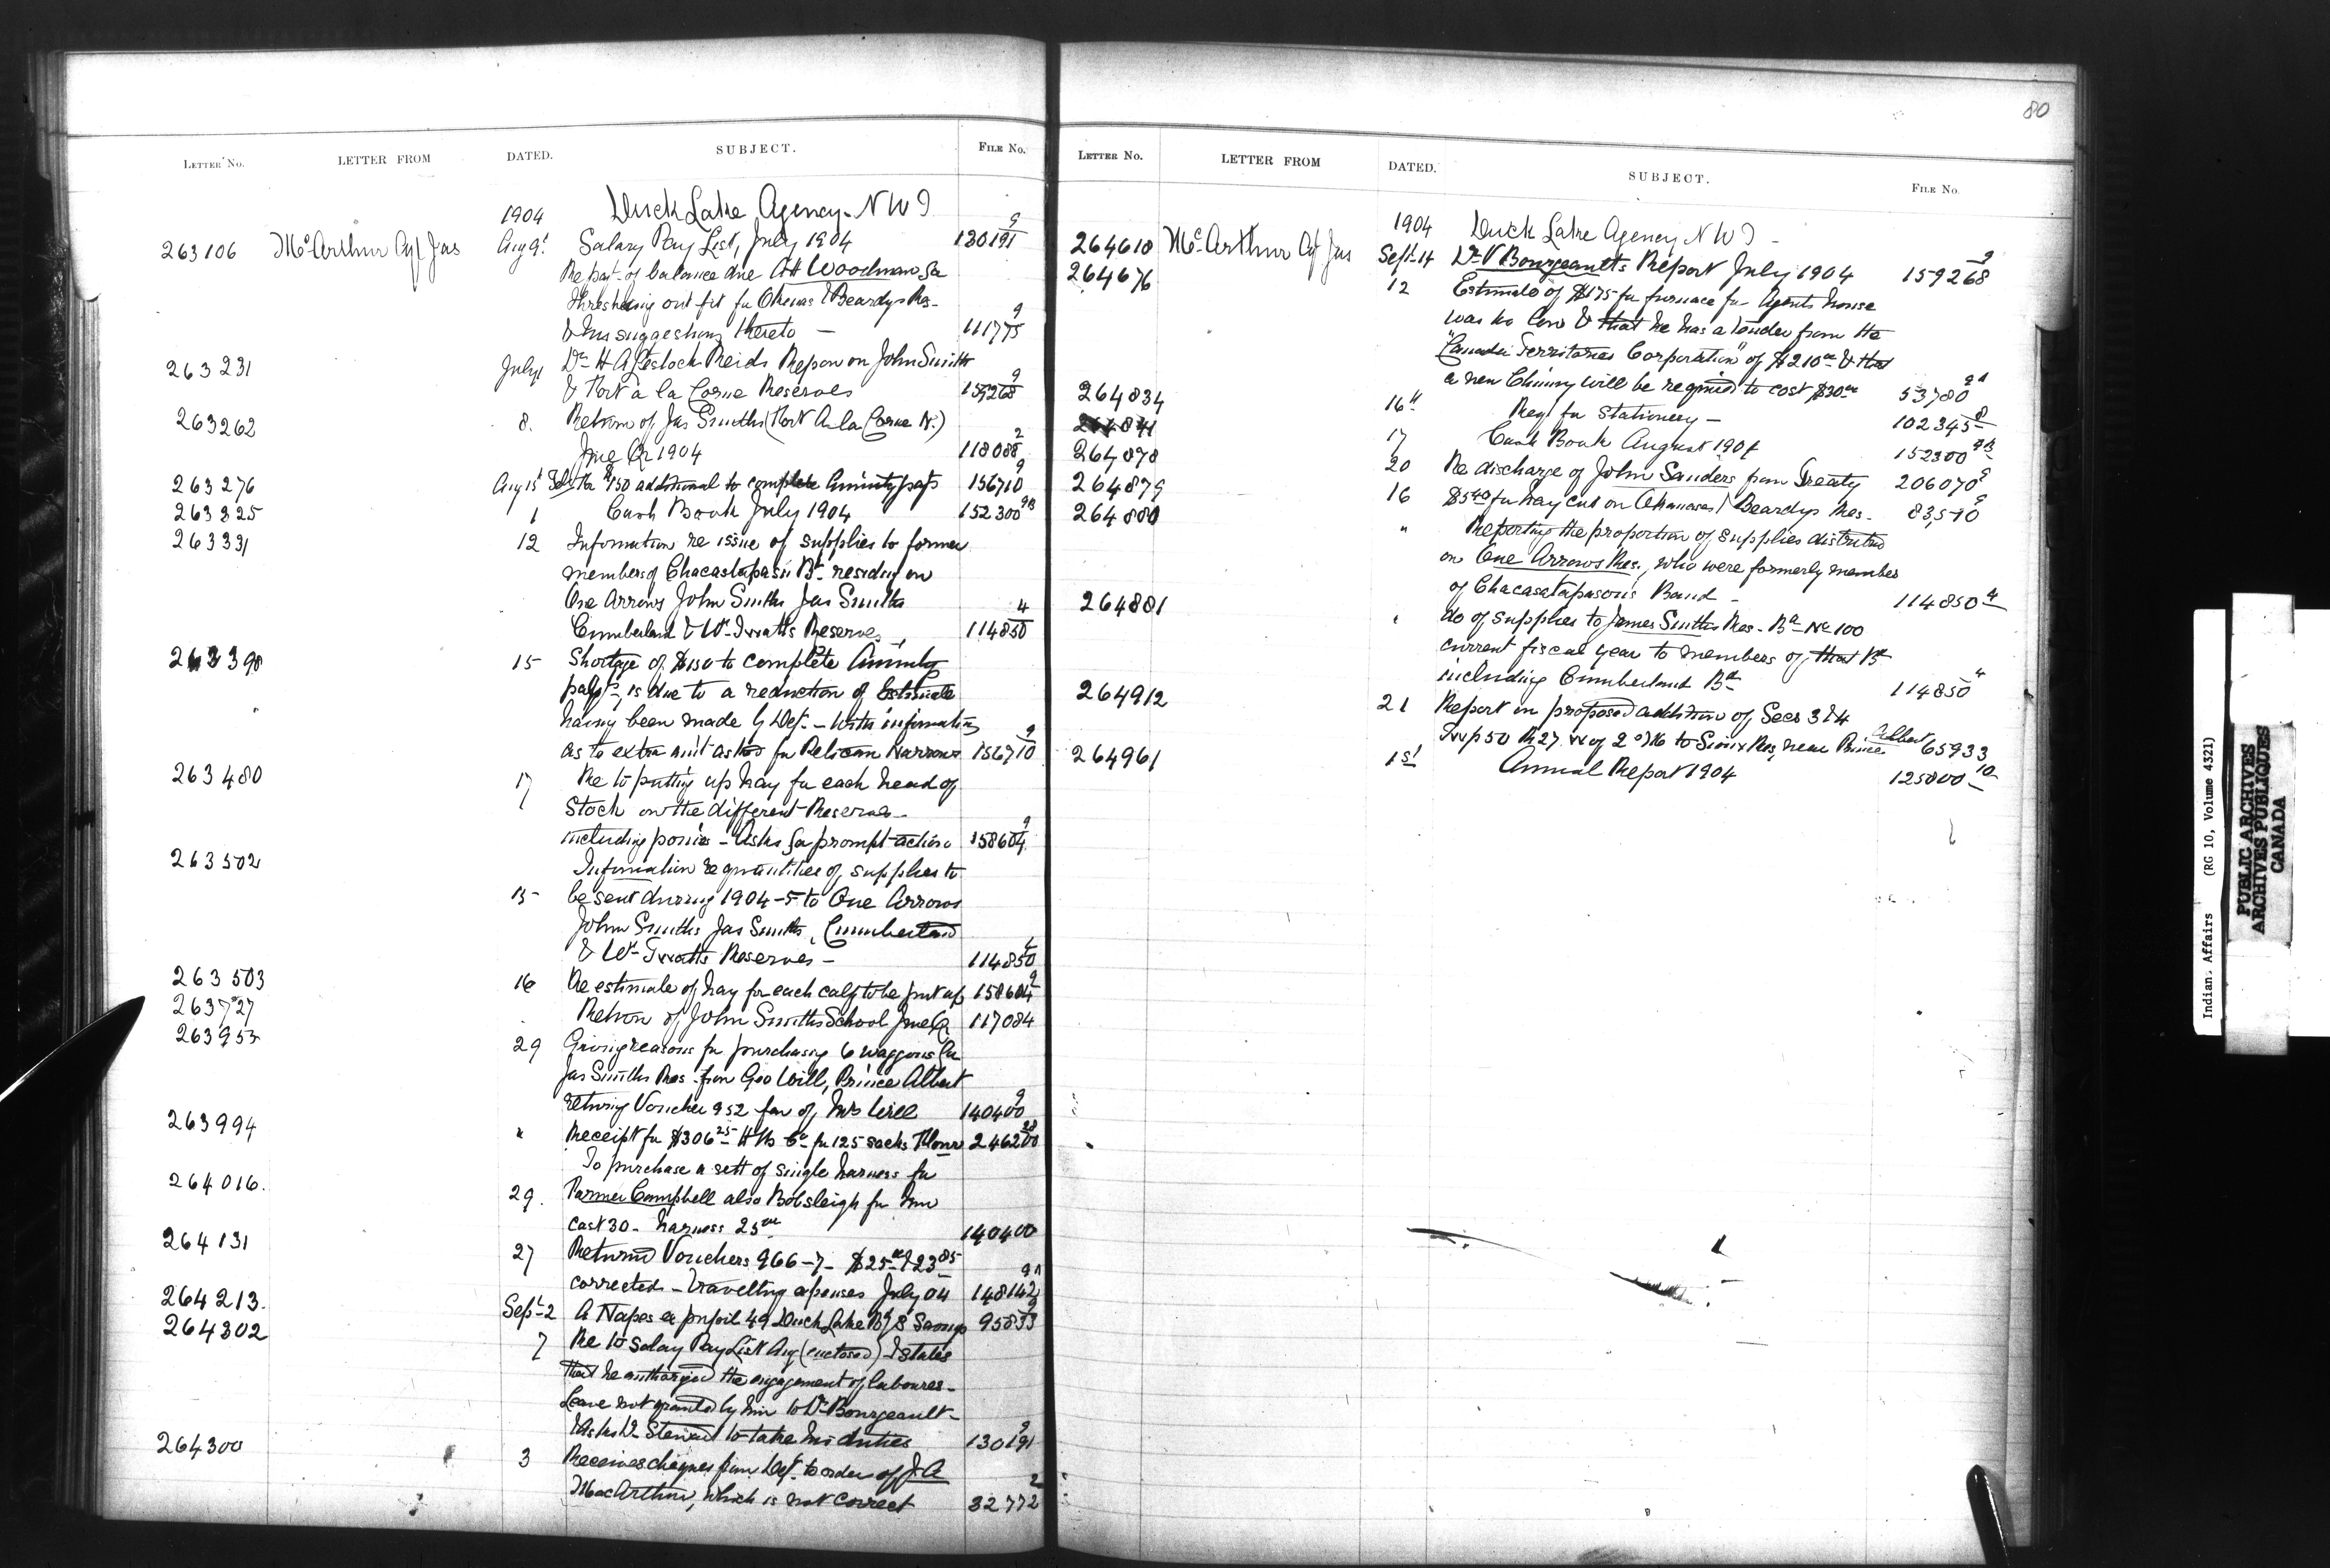 80
LETTER No. LETTER FROM DATED. SUBJECT. FILE No.
1904 Duck Lake Agency - N W T
263106 McArthur Agt Jas Aug 9t Salary Pay List, July 1904 130191 9
Re part of balance due A H Woodman for
threshing out fit for Okemas & Beardys Res-
& his suggestions thereto - 111775 9
263231 July 1 Dr H A Lestock Reids Report on John Smith
& Fort a la Corne Reserves 159268 9
263262 8. Return of Jas Smiths (Fort A la Corne N.)
June Qr 1904 118088 2
263276 Aug 15t $150 additional to complete Annuity pay's 156710 9
263325 1 Cash Book July 1904 152300 9B
263331 12 Information re issue of supplies to former
members of Chacastapasin Bd residing on
One Arrows John Smiths Jas Smiths
Cumberland & Wm Twatts Reserves 114850 4
263390 15 Shortage of $150 to complete Annuity
payts, is due to a reduction of Estimate
having been made by Dept - With information
as to extra amt asked for Pelican Narrows 156710 9
263480 17 Re to putting up hay for each head of
Stock on the different Reserves -
including ponies - Asks for prompt action 158604 9
263502 Information re quantities of supplies to
15 be sent during 1904-5 to One Arrows
John Smiths Jas Smiths, Cumberland
& Wm Twatts Reserves - 114850 4
263503 16 Re estimate of hay for each calf to be put up 158604 9
263727 Return of John Smiths School June Qr 117084
263955 29 Giving reasons for purchasing 6 waggons for
Jas Smiths Res - from Geo Will, Prince Albert
returning Voucher 952 fav of Mrs Will 140400 9
263994 " Receipt for $306 25 H B Co for 125 sacks Flour 246200 28
264016. To purchase a sett of single harness for
29. Farmer Campbell also Bobsleigh for him
cost 30 - harness 25 00 140400
264131 27 Returned Vouchers 966-7 - $25 00 & 23 85
corrected - travelling expenses July 04 148142 9A
264213. Sept 2 A Napes ex pupil 49 Duck Lake Bdg S 95833 9
264302 7 Re to Salary Pay List Aug (enclosed) & states
that he authorized the engagement of labourers -
Leave not granted by him to Dr Bourgeault -
& Asks Dr Stewart to take his duties 130191 9
264300 3 Receives cheques from Dept to order of J. A
MacArthur, which is not correct 32772 2
LETTER No. LETTER FROM DATED. SUBJECT. FILE No.
1904 Duck Lake Agency N W T -
264610 McArthur Agt Jas Sept 14 Dr V Bourgeaults Report July 1904 159268 9
264676 12 Estimate of $175 for furnace for Agents house
was too low & that he has a tender from the
"Canada Territories Corporation" of $210 00 & that
a new Chimney will be required to cost $30 00 53780 9A
264834 16th Reqn for Stationery - 102345 8
264841 17 Cash Book August 1904 152300 9B
264878 20 Re discharge of John Sanders from Treaty 206070 9
264879 16 $5 40 for hay cut on Okemases / Beardys Res - 83,510 9
264880 " Reporting the proportion of supplies distributed
on One Arrows Res., who were formerly members
of Chacastapasons Band - 114850 4
264881 " do of supplies to James Smiths Res - Bd No 100
current fiscal year to members of that Bd
including Cumberland Bd 114850 "
264912 21 Report on proposed addition of Secs 3 & 4
Twp 50 R 27 W of 2nd M to Sioux Res, near Prince Albert 65933
264961 1st Annual Report 1904 125800 10
Indian Affairs (RG 10, Volume 4321)
PUBLIC ARCHIVES
ARCHIVES PUBLIQUES
CANADA